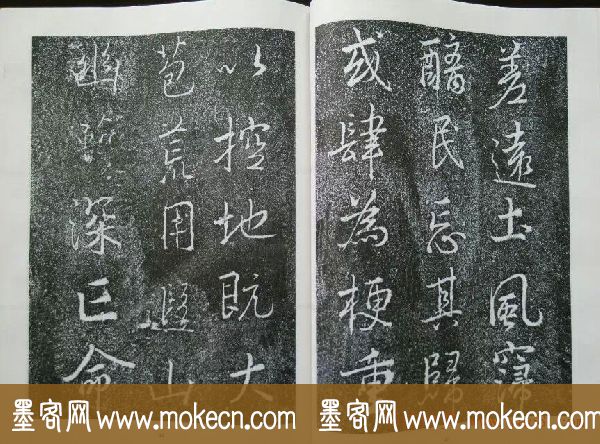 差遠土風
民忘其歸
或肆為梗重
以控地既大
苞荒用遐山
幽深亡命
墨客网 www.mokecn.com
墨客网 www.mokecn.com